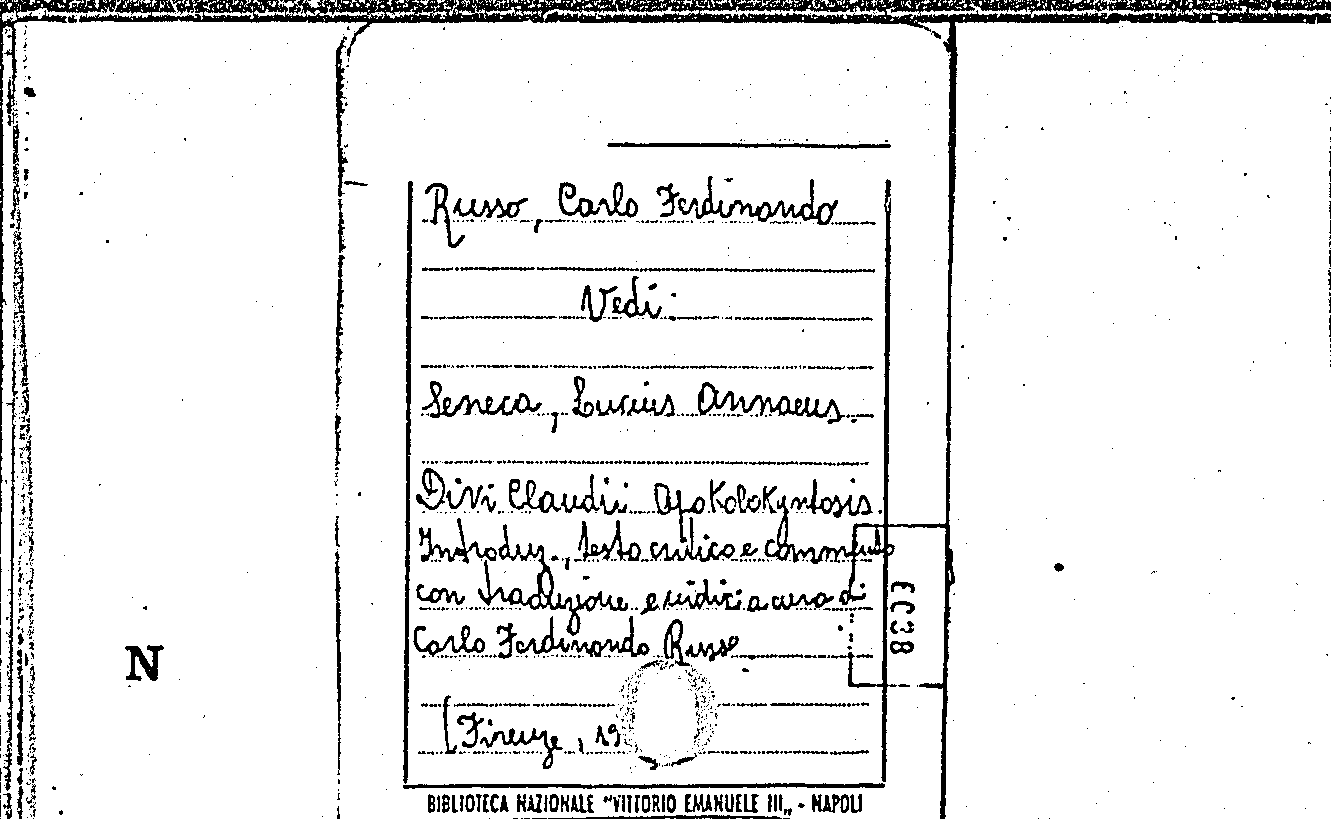 Russo, Carlo Ferdinando
Vedi:
Seneca, Lucius Annaeus.
Divi Claudii ApoKoloKyntosis.
Introduz., testo critico e commento
con traduzione e indici a cura di
Carlo Ferdinando Russo
(Firenze, 19
EC38
N
BIBLIOTECA NAZIONALE "VITTORIO EMANUELE III„ - NAPOLI